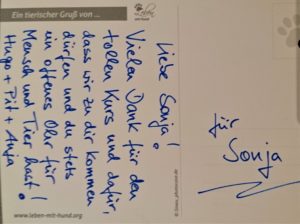 Ein tierischer Gruß von ...
Liebe Sonja!
Vielen Dank für den
tollen Kurs und dafür,
dass wir zu dir kommen
dürfen und du stets
ein offenes Ohr für
Mensch und Tier hast!
Hugo + Pit + Anja
www.leben-mit-hund.org
für
Sonja